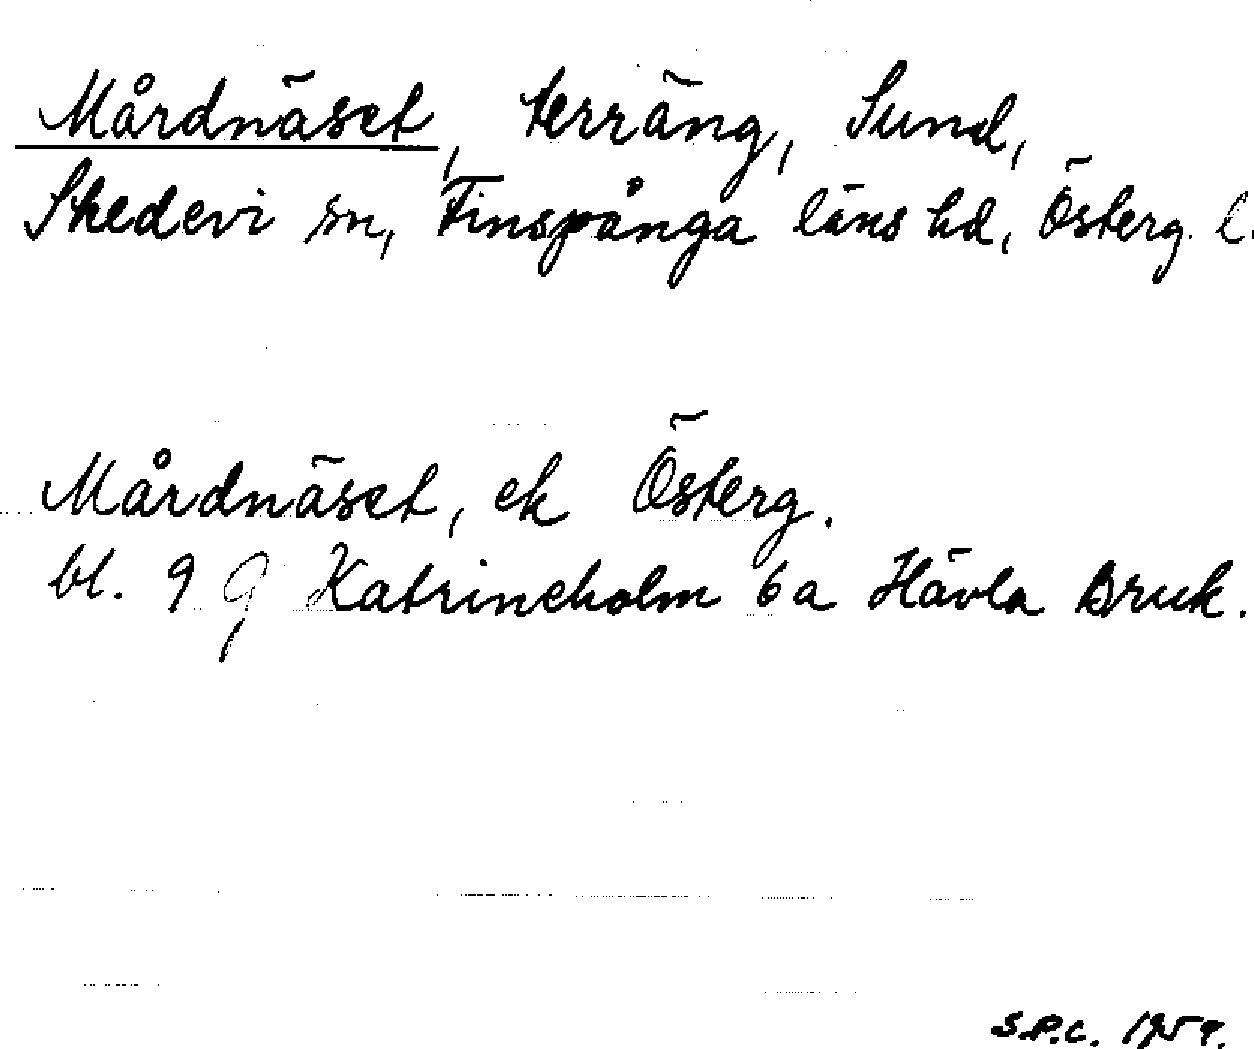 Mårdnäset, terräng, Sund,
Skedevi sn, Finspånga läns hd, Österg. l.
Mårdnäset, ek Österg.
bl. 9 g Katrineholm 6a Hävla Bruk.
S.P.C. 1959.